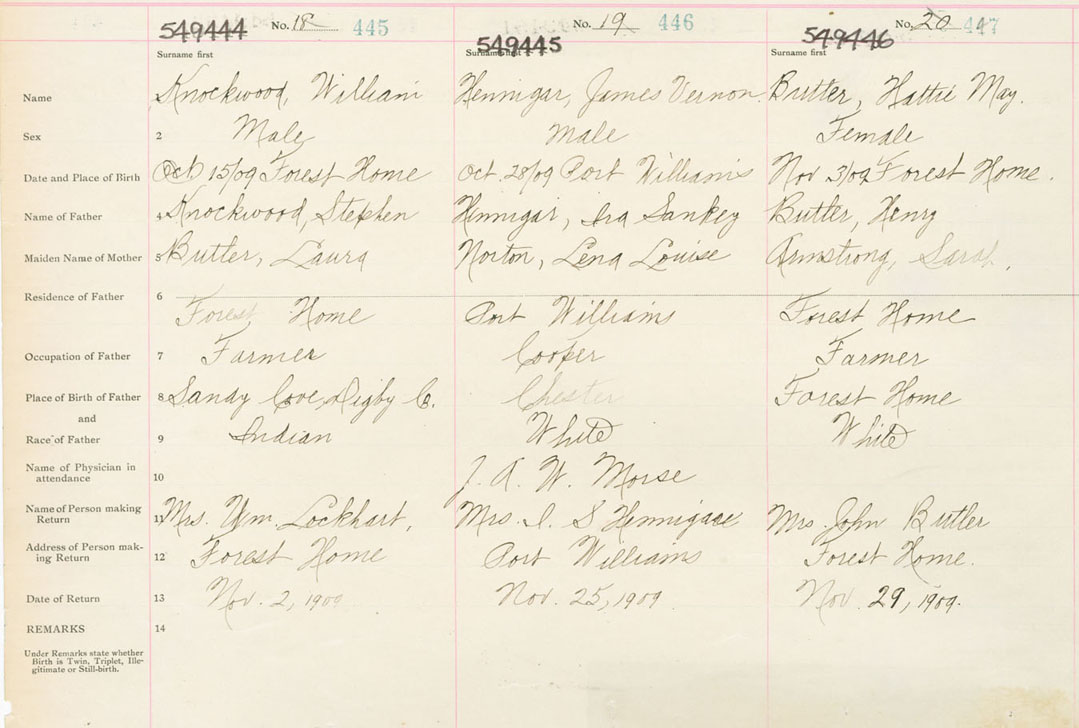 549444 No. 18 445 549445 No. 19 446 549446 No. 20 447
Surname first Surname first Surname first
Name 1 Knockwood, William Hennigar, James Vernon Butler, Hattie May.
Sex 2 Male Male Female
Date and Place of Birth Oct 15/09 Forest Home Oct. 28/09 Port Williams Nov 3/09 Forest Home.
Name of Father 4 Knockwood, Stephen Hennigar, Ira Sankey Butler, Henry
Maiden Name of Mother 5 Butler, Laura Norton, Lena Louise Armstrong, Sarah.
Residence of Father 6 Forest Home Port Williams Forest Home
Occupation of Father 7 Farmer Cooper Farmer
Place of Birth of Father 8 Sandy Cove, Digby C. Chester Forest Home
and
Race of Father 9 Indian White White
Name of Physician in
attendance 10 J. A. W. Morse
Name of Person making
Return 11 Mrs. Wm. Lockhart, Mrs. I. S Hennigar Mrs. John Butler
Address of Person mak-
ing Return 12 Forest Home Port Williams Forest Home.
Date of Return 13 Nov. 2, 1909 Nov. 25, 1909 Nov. 29, 1909.
REMARKS 14
Under Remarks state whether
Birth is Twin, Triplet, Ille-
gitimate or Still-birth.